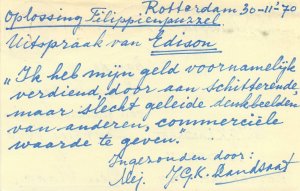 Rotterdam 30-11-'70
Oplossing Filippienpuzzel
Uitspraak van Edison.
"Ik heb mijn geld voornamelijk
verdiend, door aan schitterende,
maar slecht geleide denkbeelden
van anderen, commerciële
waarde te geven."
Ingezonden door:
Mej. J.G.K.